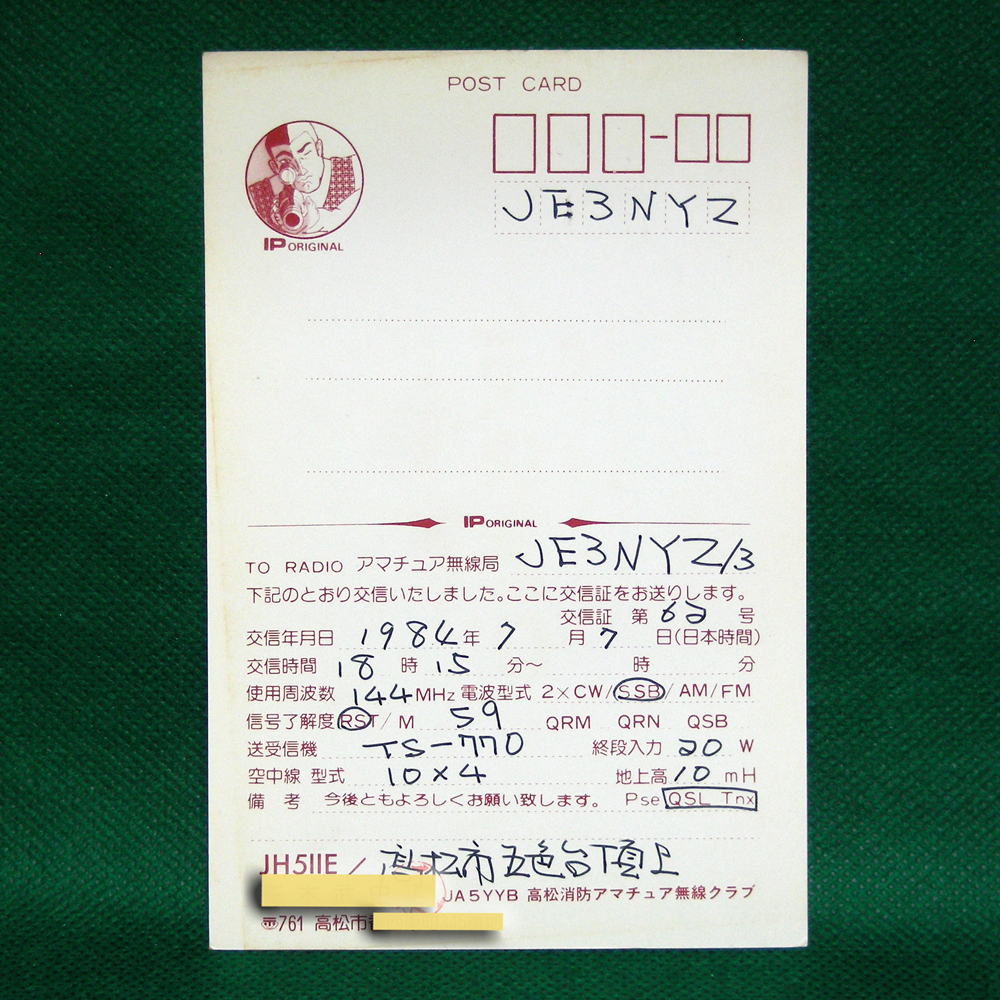 POST CARD
JE3NYZ
IP ORIGINAL
IP ORIGINAL
TO RADIO アマチュア無線局 JE3NYZ/3
下記のとおり交信いたしました。ここに交信証をお送りします。
交信証 第 62 号
交信年月日 1984年 7 月 7 日(日本時間)
交信時間 18 時 15 分～ 時 分
使用周波数 144 MHz 電波型式 2×CW/SSB/AM/FM
信号了解度 RST/M 59 QRM QRN QSB
送受信機 TS-770 終段入力 20 W
空中線 型式 10×4 地上高 10 mH
備 考 今後ともよろしくお願い致します。 Pse QSL Tnx
JH5IIE / 高松市五色台頂上
JA5YYB 高松消防アマチュア無線クラブ
〠761 高松市